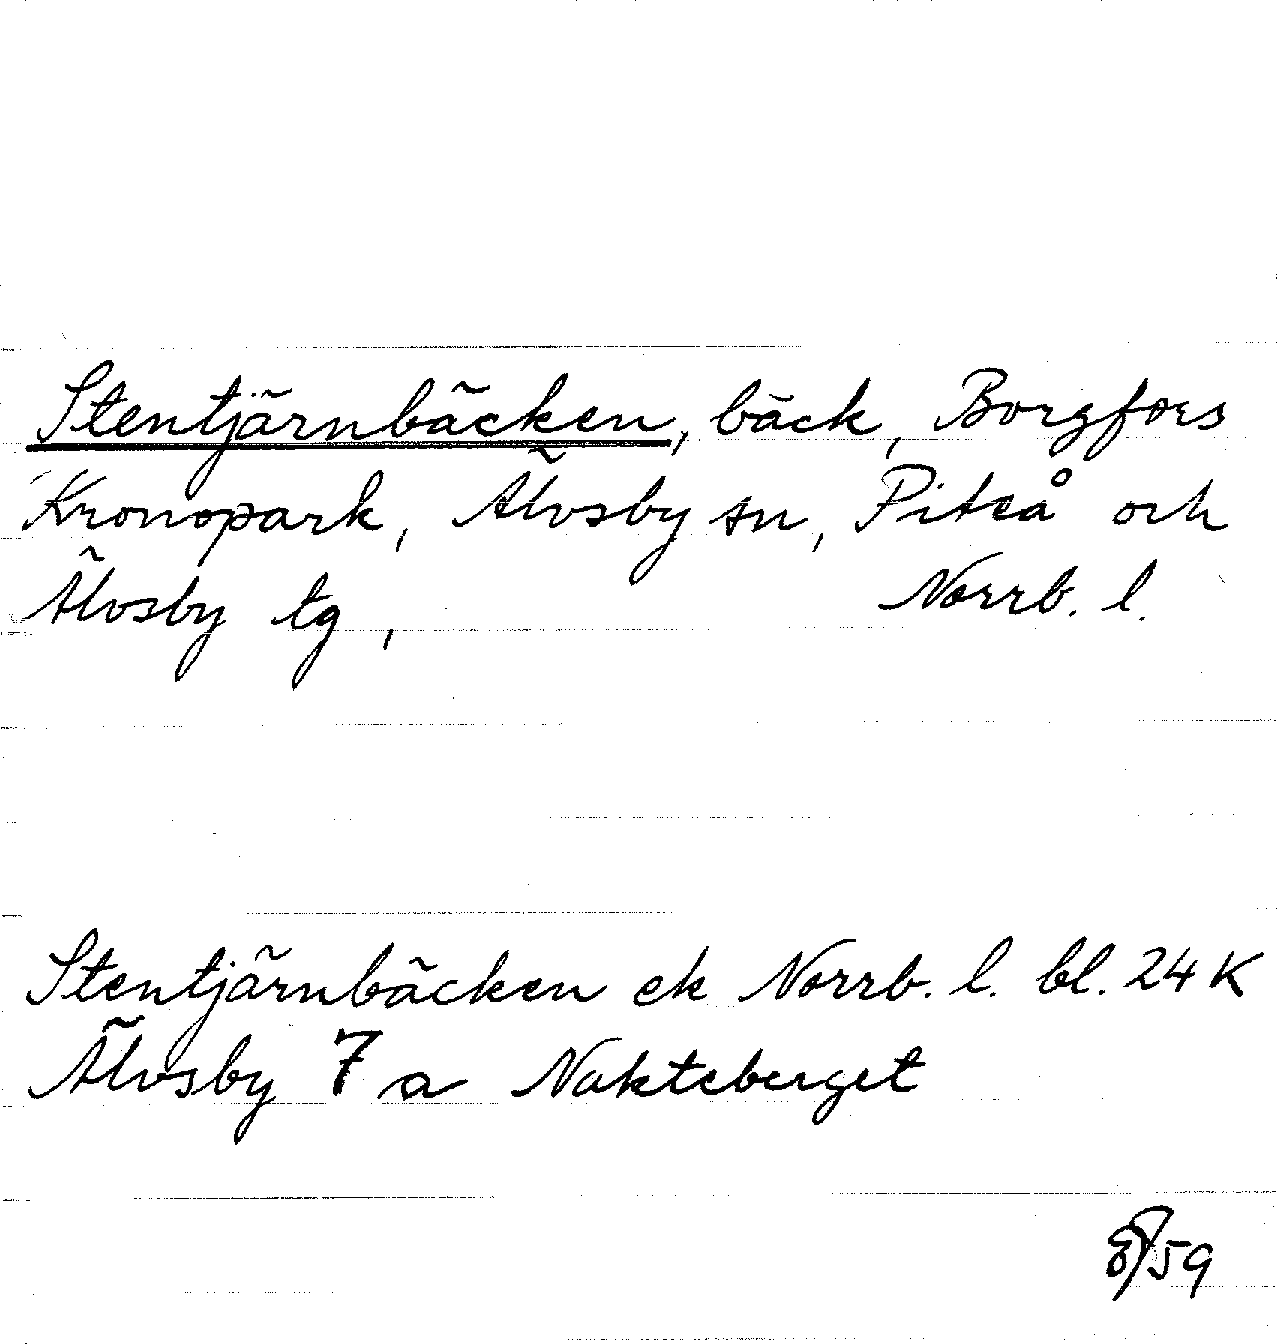 Stentjärnbäcken, bäck, Borgfors
Kronopark, Älvsby sn, Piteå och
Älvsby tg, Norrb. l.
Stentjärnbäcken ek Norrb. l. bl. 24 K
Älvsby 7 a Nakteberget
59